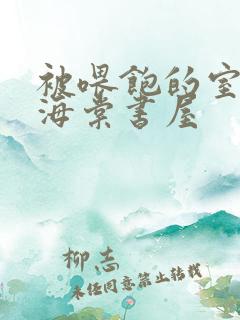 被喂饱的室
海棠书屋
柳志
未经同意禁止转载